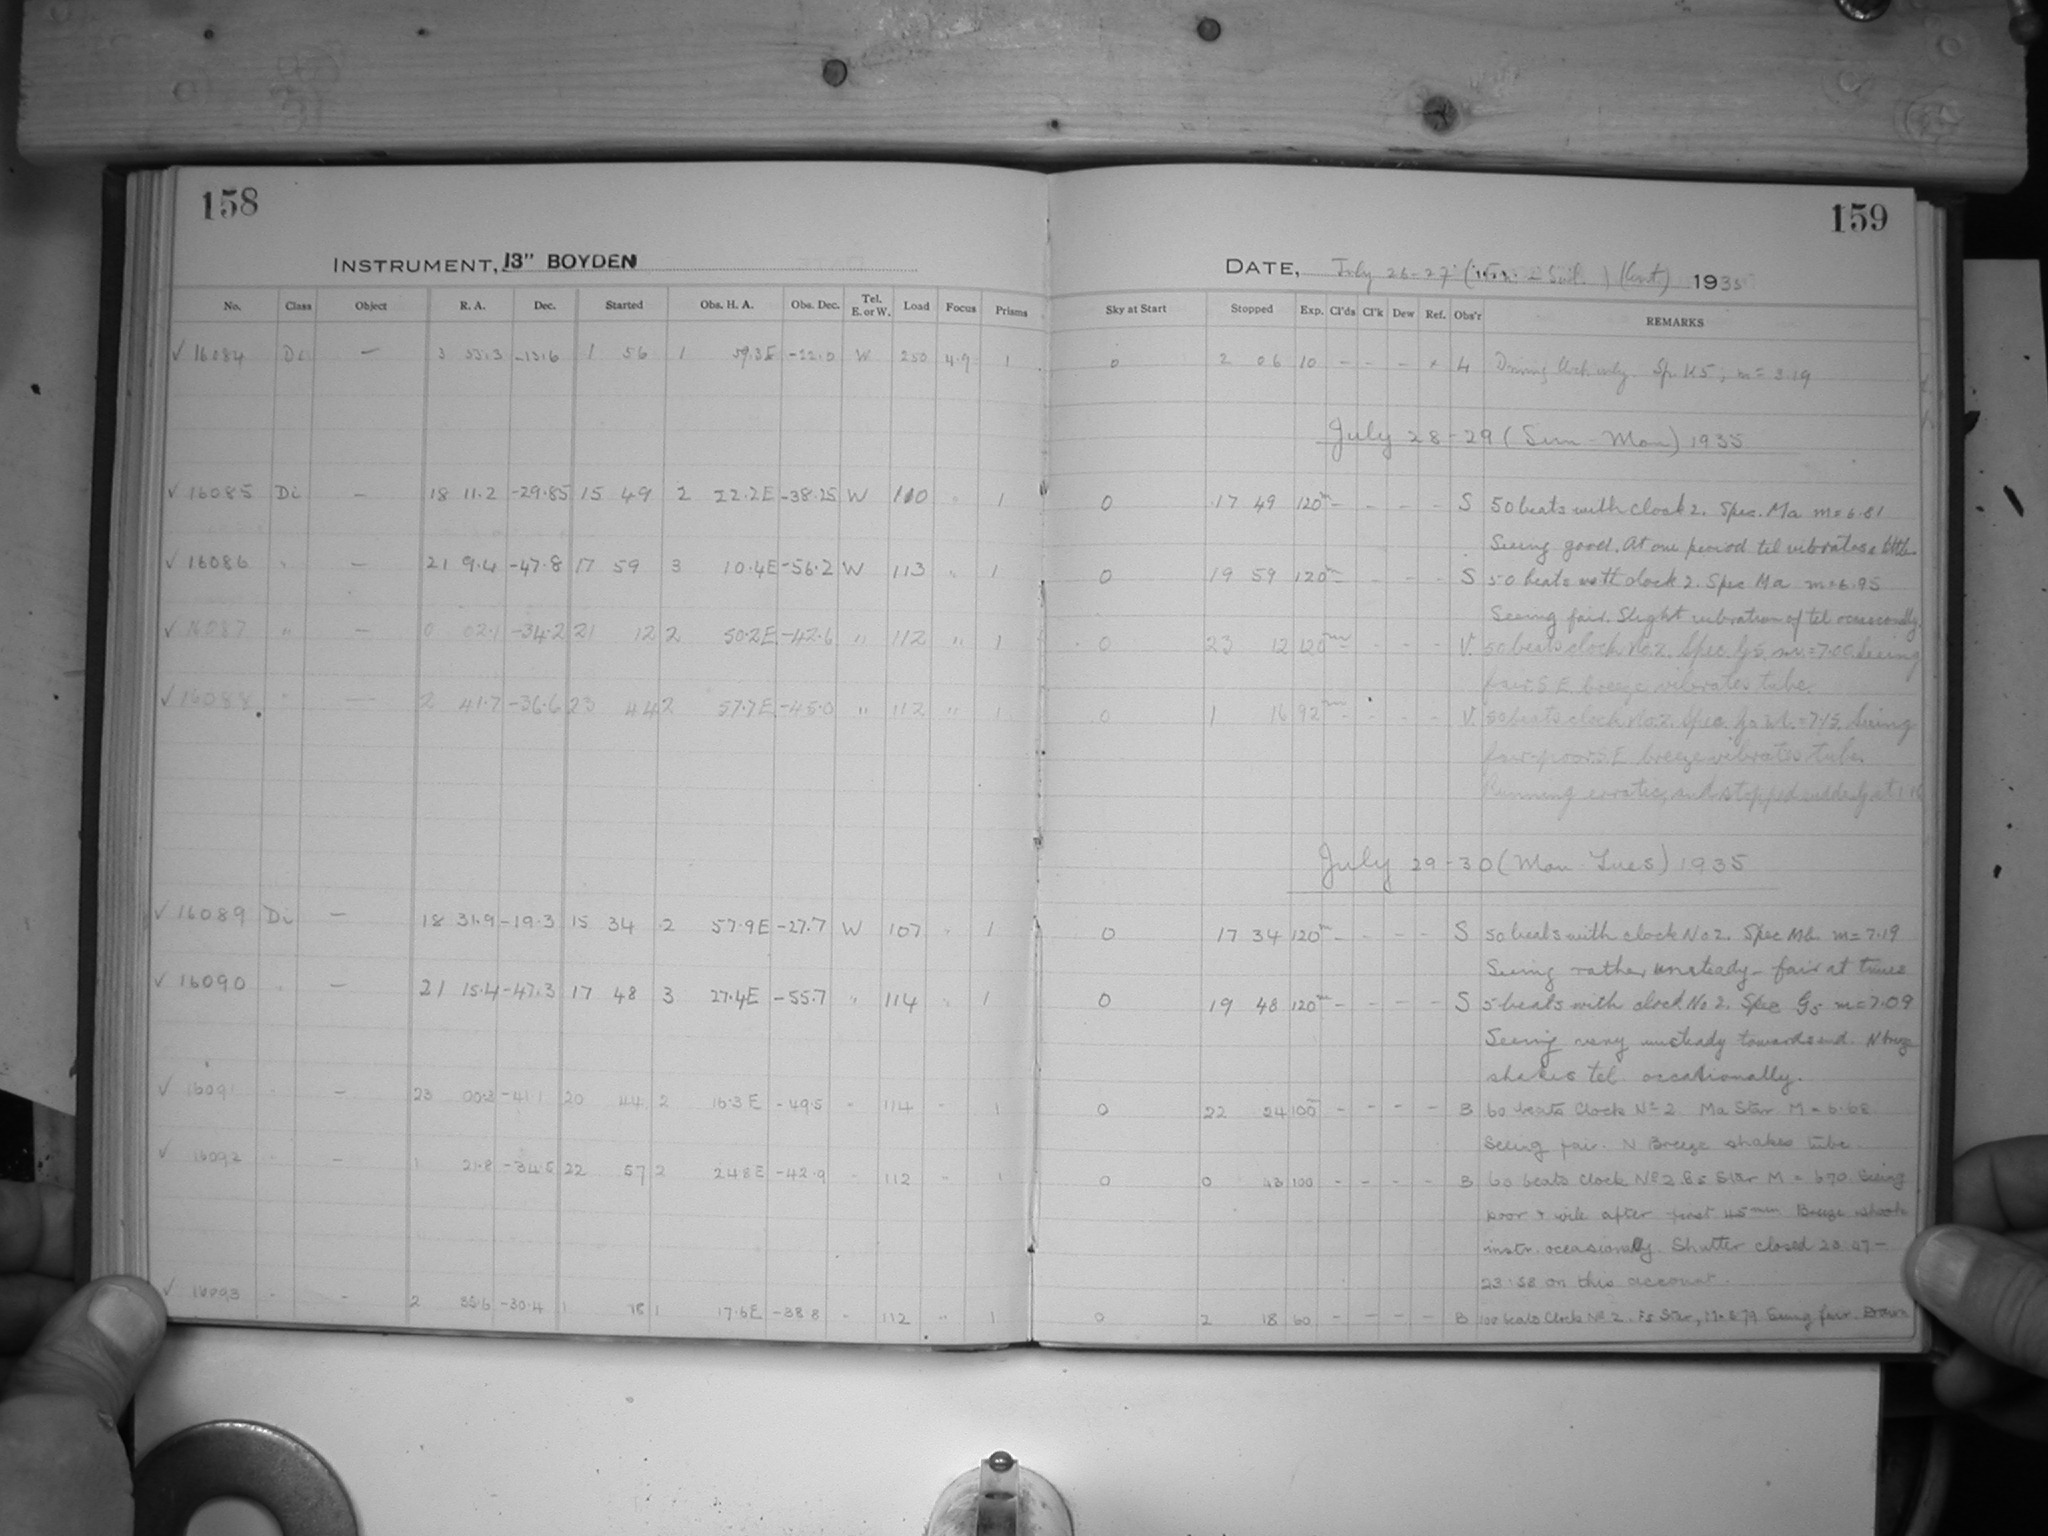 158
159
INSTRUMENT, 13" BOYDEN
DATE, July 26-27 (Cont.) 1935
No. Class Object R. A. Dec. Started Obs. H. A. Obs. Dec. Tel. E. or W. Load Focus Prisms Sky at Start Stopped Exp. Cl'ds Cl'k Dew Ref. Obs'r REMARKS
√ 16084 Di — 3 55.3 -13.6 1 56 1 59.3E -22.0 W 250 4.9 1 0 2 06 10 - - - Driving Clock only. Sp. K5; m = 3.19
July 28-29 (Sun-Mon) 1935
√ 16085 Di — 18 11.2 -29.85 15 49 2 22.2E -38.25 W 110 " 1 0 17 49 120m - - - - S 50 beats with clock 2. Spec. Ma m=6.81
Seeing good. At one period tel vibrates a little
√ 16086 " — 21 9.4 -47.8 17 59 3 10.4E -56.2 W 113 " 1 0 19 59 120m - - - - S 50 beats with clock 2. Spec Ma m=6.95
Seeing fair. Slight vibration of tel occasionally.
√ 16087 " — 0 02.1 -34.2 21 12 2 50.2E -42.6 " 112 " 1 0 23 12 120m - - - - V. 50 beats clock No.2. Spec G5 m=7.00 Seeing
fair S.E. breeze vibrates tube.
√ 16088 " — 2 41.7 -36.6 23 44 2 57.7E -45.0 " 112 " 1 0 1 16 92m - - - - V. 50 beats clock No.2. Spec. =7.15. Seeing
fair-poor S.E. breeze vibrates tube.
Running erratic, and stopped suddenly at 1 16
July 29-30 (Mon-Tues) 1935
√ 16089 Di — 18 31.9 -19.3 15 34 2 57.9E -27.7 W 107 " 1 0 17 34 120m - - - - S 50 beats with clock No 2. Spec Mb m=7.19
Seeing rather unsteady - fair at times
√ 16090 " — 21 15.4 -47.3 17 48 3 27.4E -55.7 " 114 " 1 0 19 48 120m - - - - S 5 beats with clock No 2. Spec G5 m=7.09
Seeing very unsteady towards end. N breeze
shakes tel. occationally.
√ 16091 " — 23 00.3 -41.1 20 44 2 16.3E -49.5 " 114 " 1 0 22 24 100m - - - - B 60 beats Clock No 2 Ma Star M = 6.68
Seeing fair. N Breeze shakes tube
√ 16092 " — 1 21.8 -34.5 22 57 2 24.8E -42.9 " 112 " 1 0 0 43 100 - - - - B 60 beats Clock No 2 Star M = 6.70 Seeing
poor after first 45 min Breeze shook
instr. occasionally. Shutter closed 23.47-
23.58 on this account.
√ 16093 " — 2 35.6 -30.4 1 18 1 17.6E -38.8 " 112 " 1 0 2 18 60 - - - - B 100 beats Clock No 2. Star, Seeing fair. Dawn